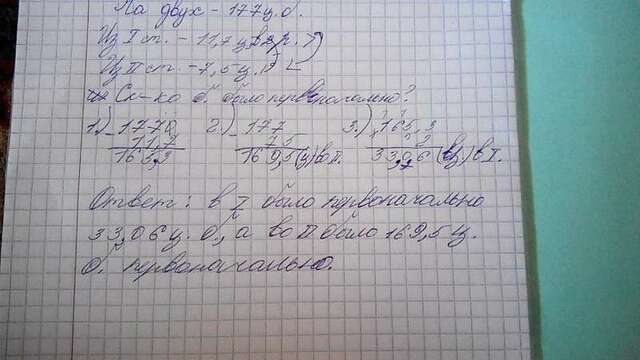 На двух - 177 ц б.
Из I ст. - 11,7 ц
Из II ст. - 7,5 ц.
Ск-ко б. было первоначально?
1.) 177,0 2.) 177 3.) 165,3
11,7 7,5 2
165,3 169,5 (ц) во II. 33,06 (ц) в I.
Ответ: в I было первоначально
33,06 ц. б., а во II было 169,5 ц.
б. первоначально.